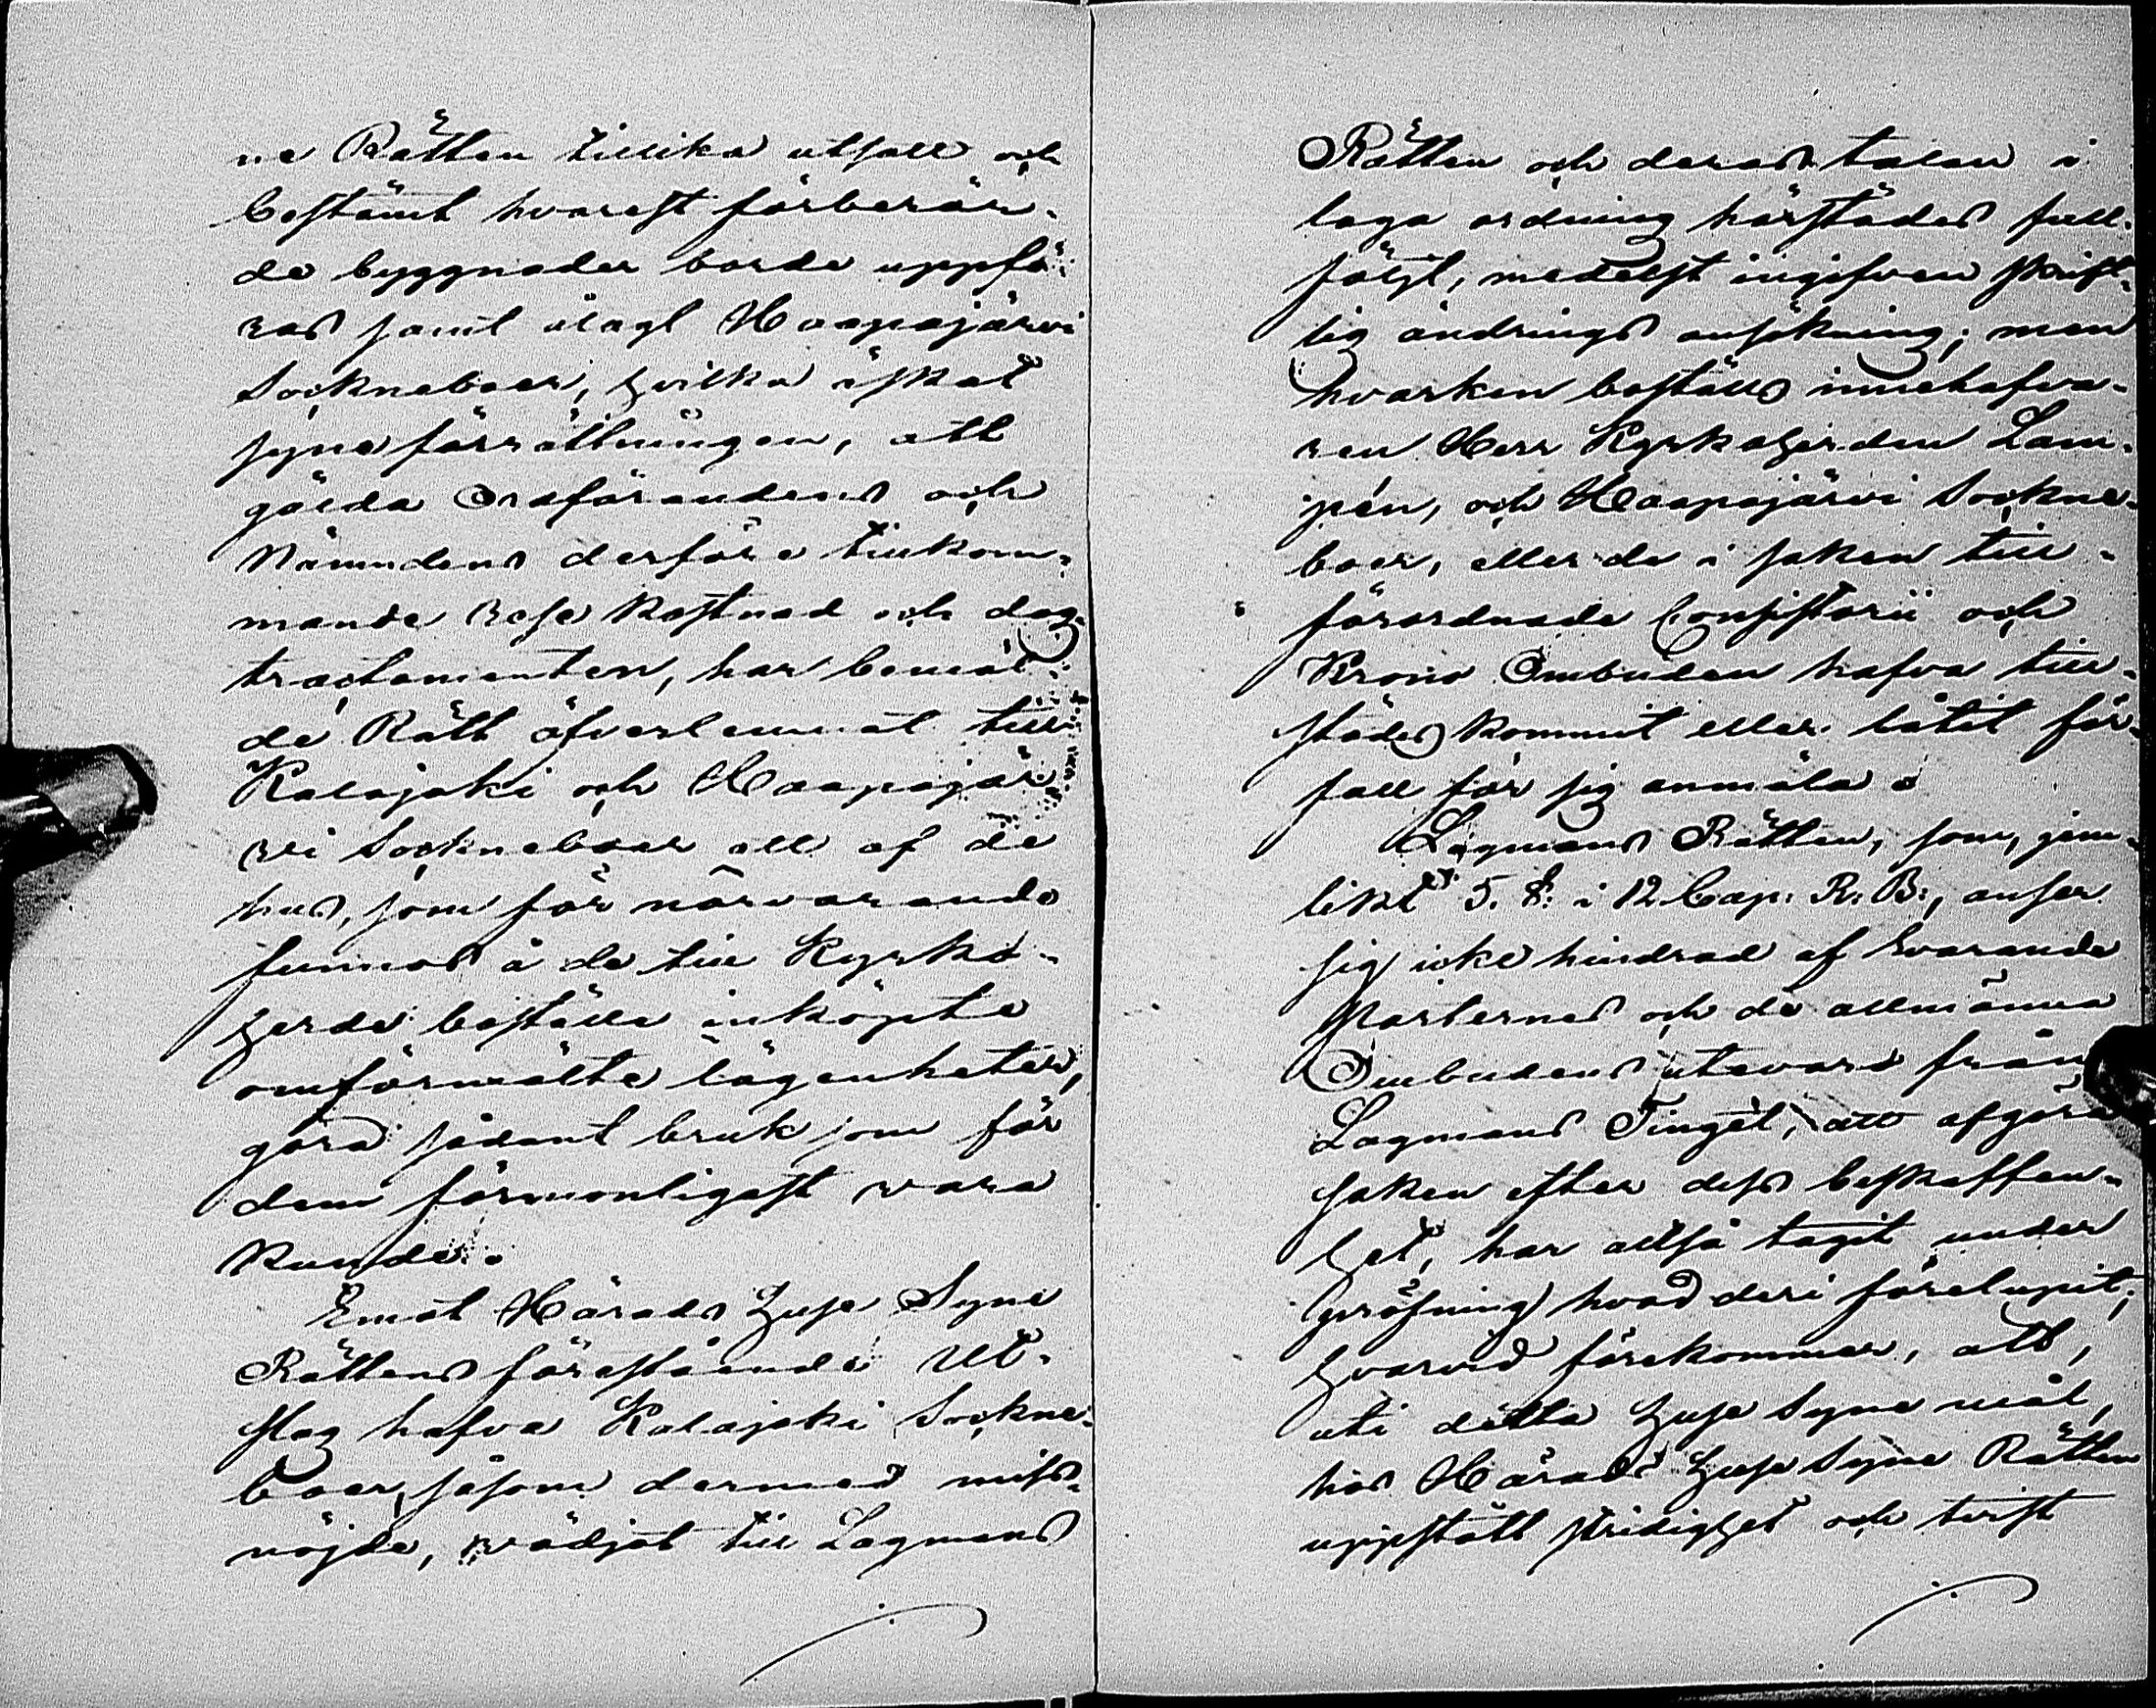 ne Rätten tillika utsatt och
bestämt hvarest förberör-
de byggnader borde uppfö-
ras samt ålagt Haapajärvi
Sockneboer, hvilka äskat
syneförrättningen, att
gälda Ordförandens och
Nämndens derföre tillkom-
mande Rese kostnad och dag-
tractamenten, har bemäl-
de Rätt öfverlemnat till
Kalajoki och Haapajär-
vi Sockneboer att af de
hus, som för närvarande
finnas å de till Kyrko-
herde boställe inköpte
omförmälte lägenheter,
göra sådant bruk som för
dem förmonligast vara
kunde.
Emot Härads Husesyne
Rättens förestående Ut-
slag hafva Kalajoki Sockne-
boer, såsom dermed miss-
nöjde, vädjat till Lagmans
Rätten och deras talan i
laga ordning härstädes full-
följt, medelst ingifven skrift-
lig ändrings ansökning; men
hvarken boställs innehafva-
ren Herr Kyrkoherden Lam-
pén, och Haapajärvi Sockne-
boer, eller de i saken till-
förordnade Consistorii och
Krono Ombuden hafva till-
städes kommit eller låtit för-
fall för sig anmäla.
Lagmans Rätten, som, jem-
likt 5. §. i 12 Cap. R. B., anser
sig icke hindrad af Svarande
Parternas och de allmänna
Ombudens utevaro från
Lagmans Tinget, att afgöra
saken efter dess beskaffen-
het, har altså tagit under
pröfning hvad deri förelupit;
hvarvid förekommer, att,
uti detta Huse Syne mål,
hos Härads Huse Syne Rätten
uppstått stridighet och tvist